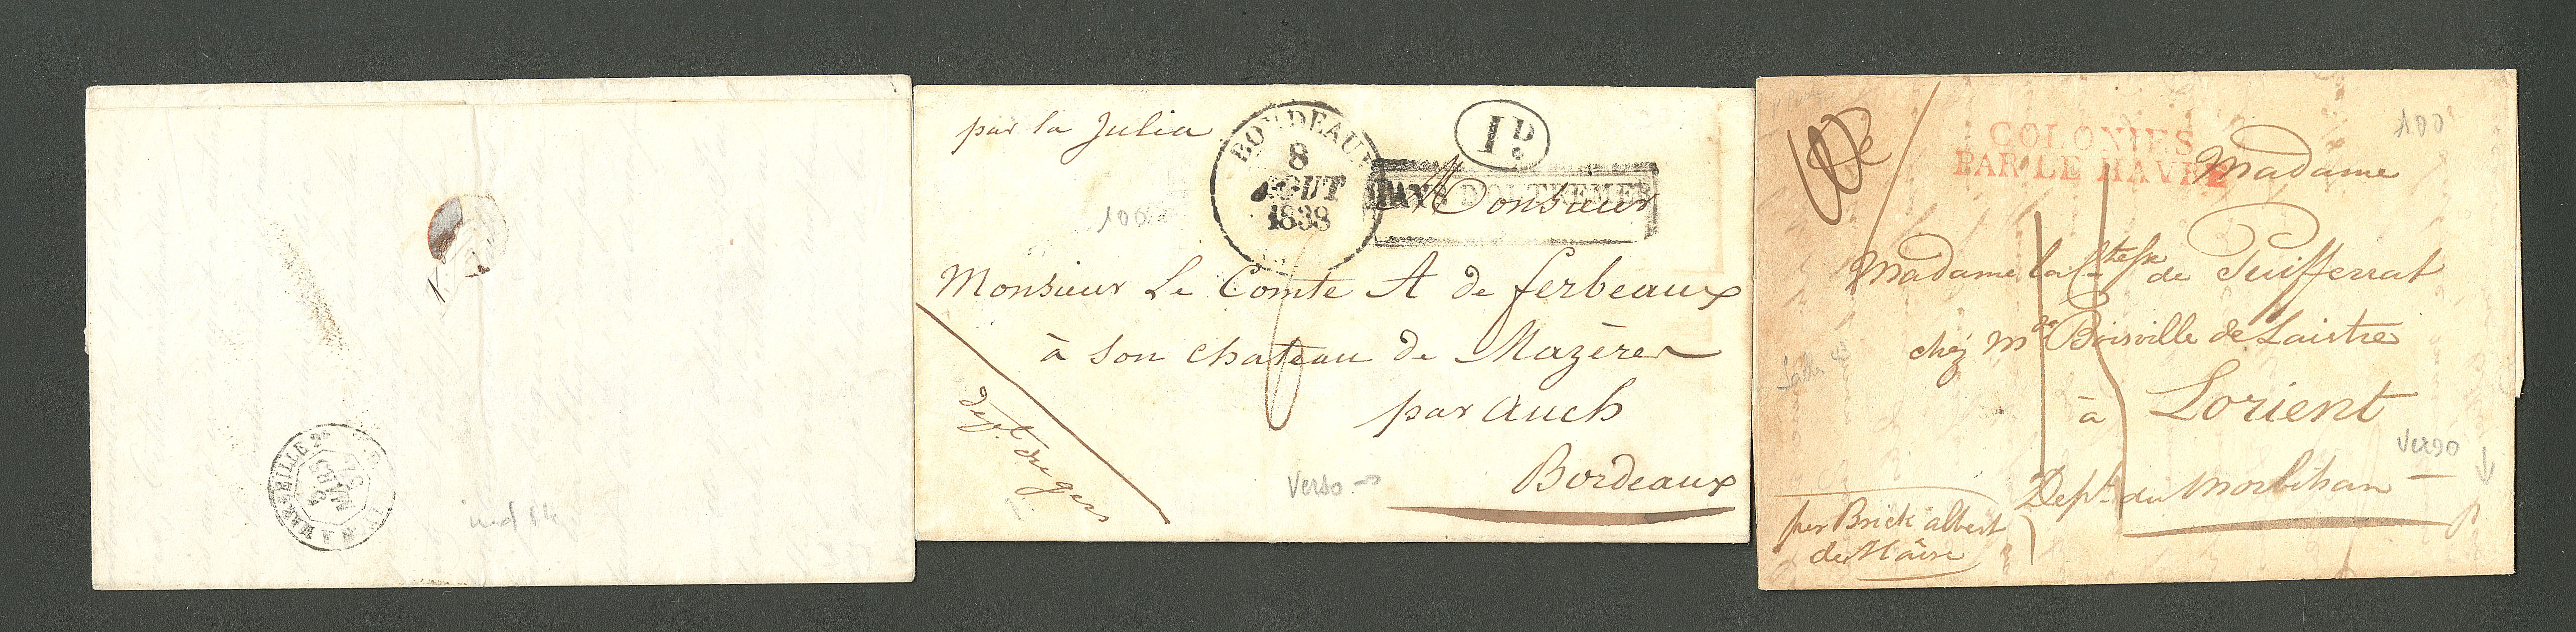 MARSEILLE
ind 14
par la Julia
BORDEAUX
8
AOUT
1838
1D.
PAYS D'OUTREMER
100
Monsieur
Monsieur Le Comte A de ferbeaux
à son chateau de Mazères
par auch
Bordeaux
dept. du gers
Verso
COLONIES
PAR LE HAVRE
100
Madame
Madame la Ctesse de Puifferrat
chez Mde Boisville de Laistre
à Lorient
Dept. du Morbihan
Verso
par Brick albert
du Hâvre